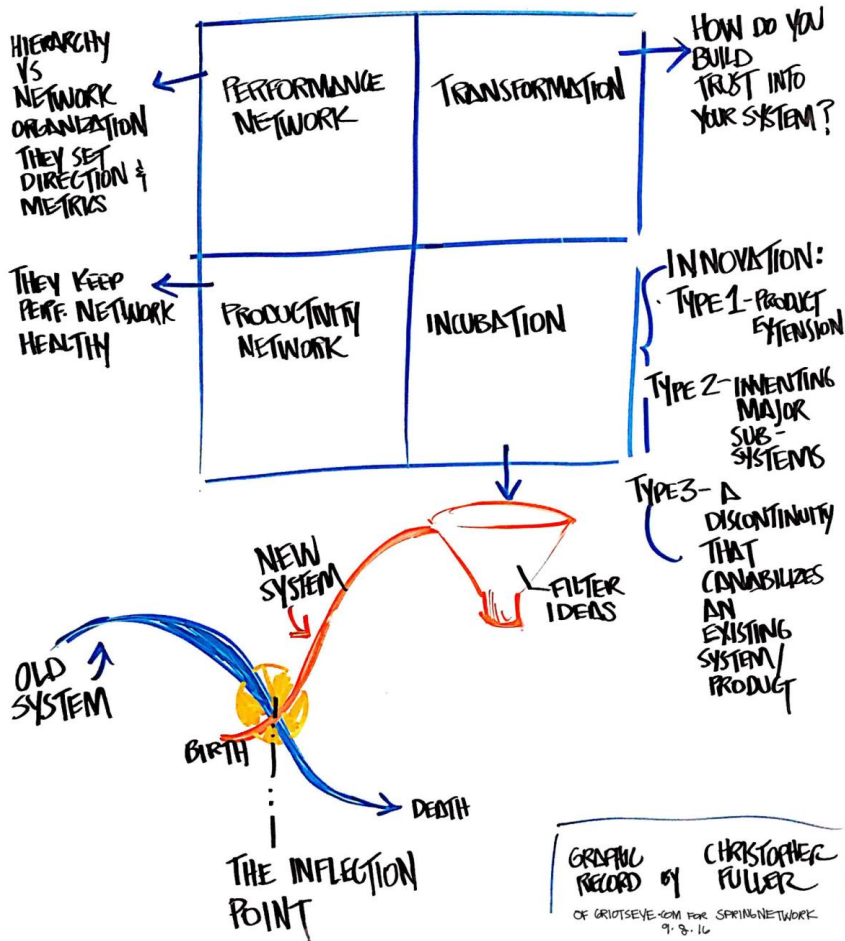 HIERARCHY
VS
NETWORK
ORGANIZATION
THEY SET
DIRECTION &
METRICS
PERFORMANCE
NETWORK
TRANSFORMATION
HOW DO YOU
BUILD
TRUST INTO
YOUR SYSTEM?
THEY KEEP
PERF. NETWORK
HEALTHY
PRODUCTIVITY
NETWORK
INCUBATION
INNOVATION:
TYPE 1-PRODUCT
EXTENSION
TYPE 2-INVENTING
MAJOR
SUB-
SYSTEMS
TYPE 3- A
DISCONTINUITY
THAT
CANABILIZES
AN
EXISTING
SYSTEM/
PRODUCT
NEW
SYSTEM
FILTER
IDEAS
OLD
SYSTEM
BIRTH
DEATH
THE INFLECTION
POINT
GRAPHIC
RECORD BY CHRISTOPHER
FULLER
OF GRIOTSEYE.COM FOR SPRINGNETWORK
9.8.16